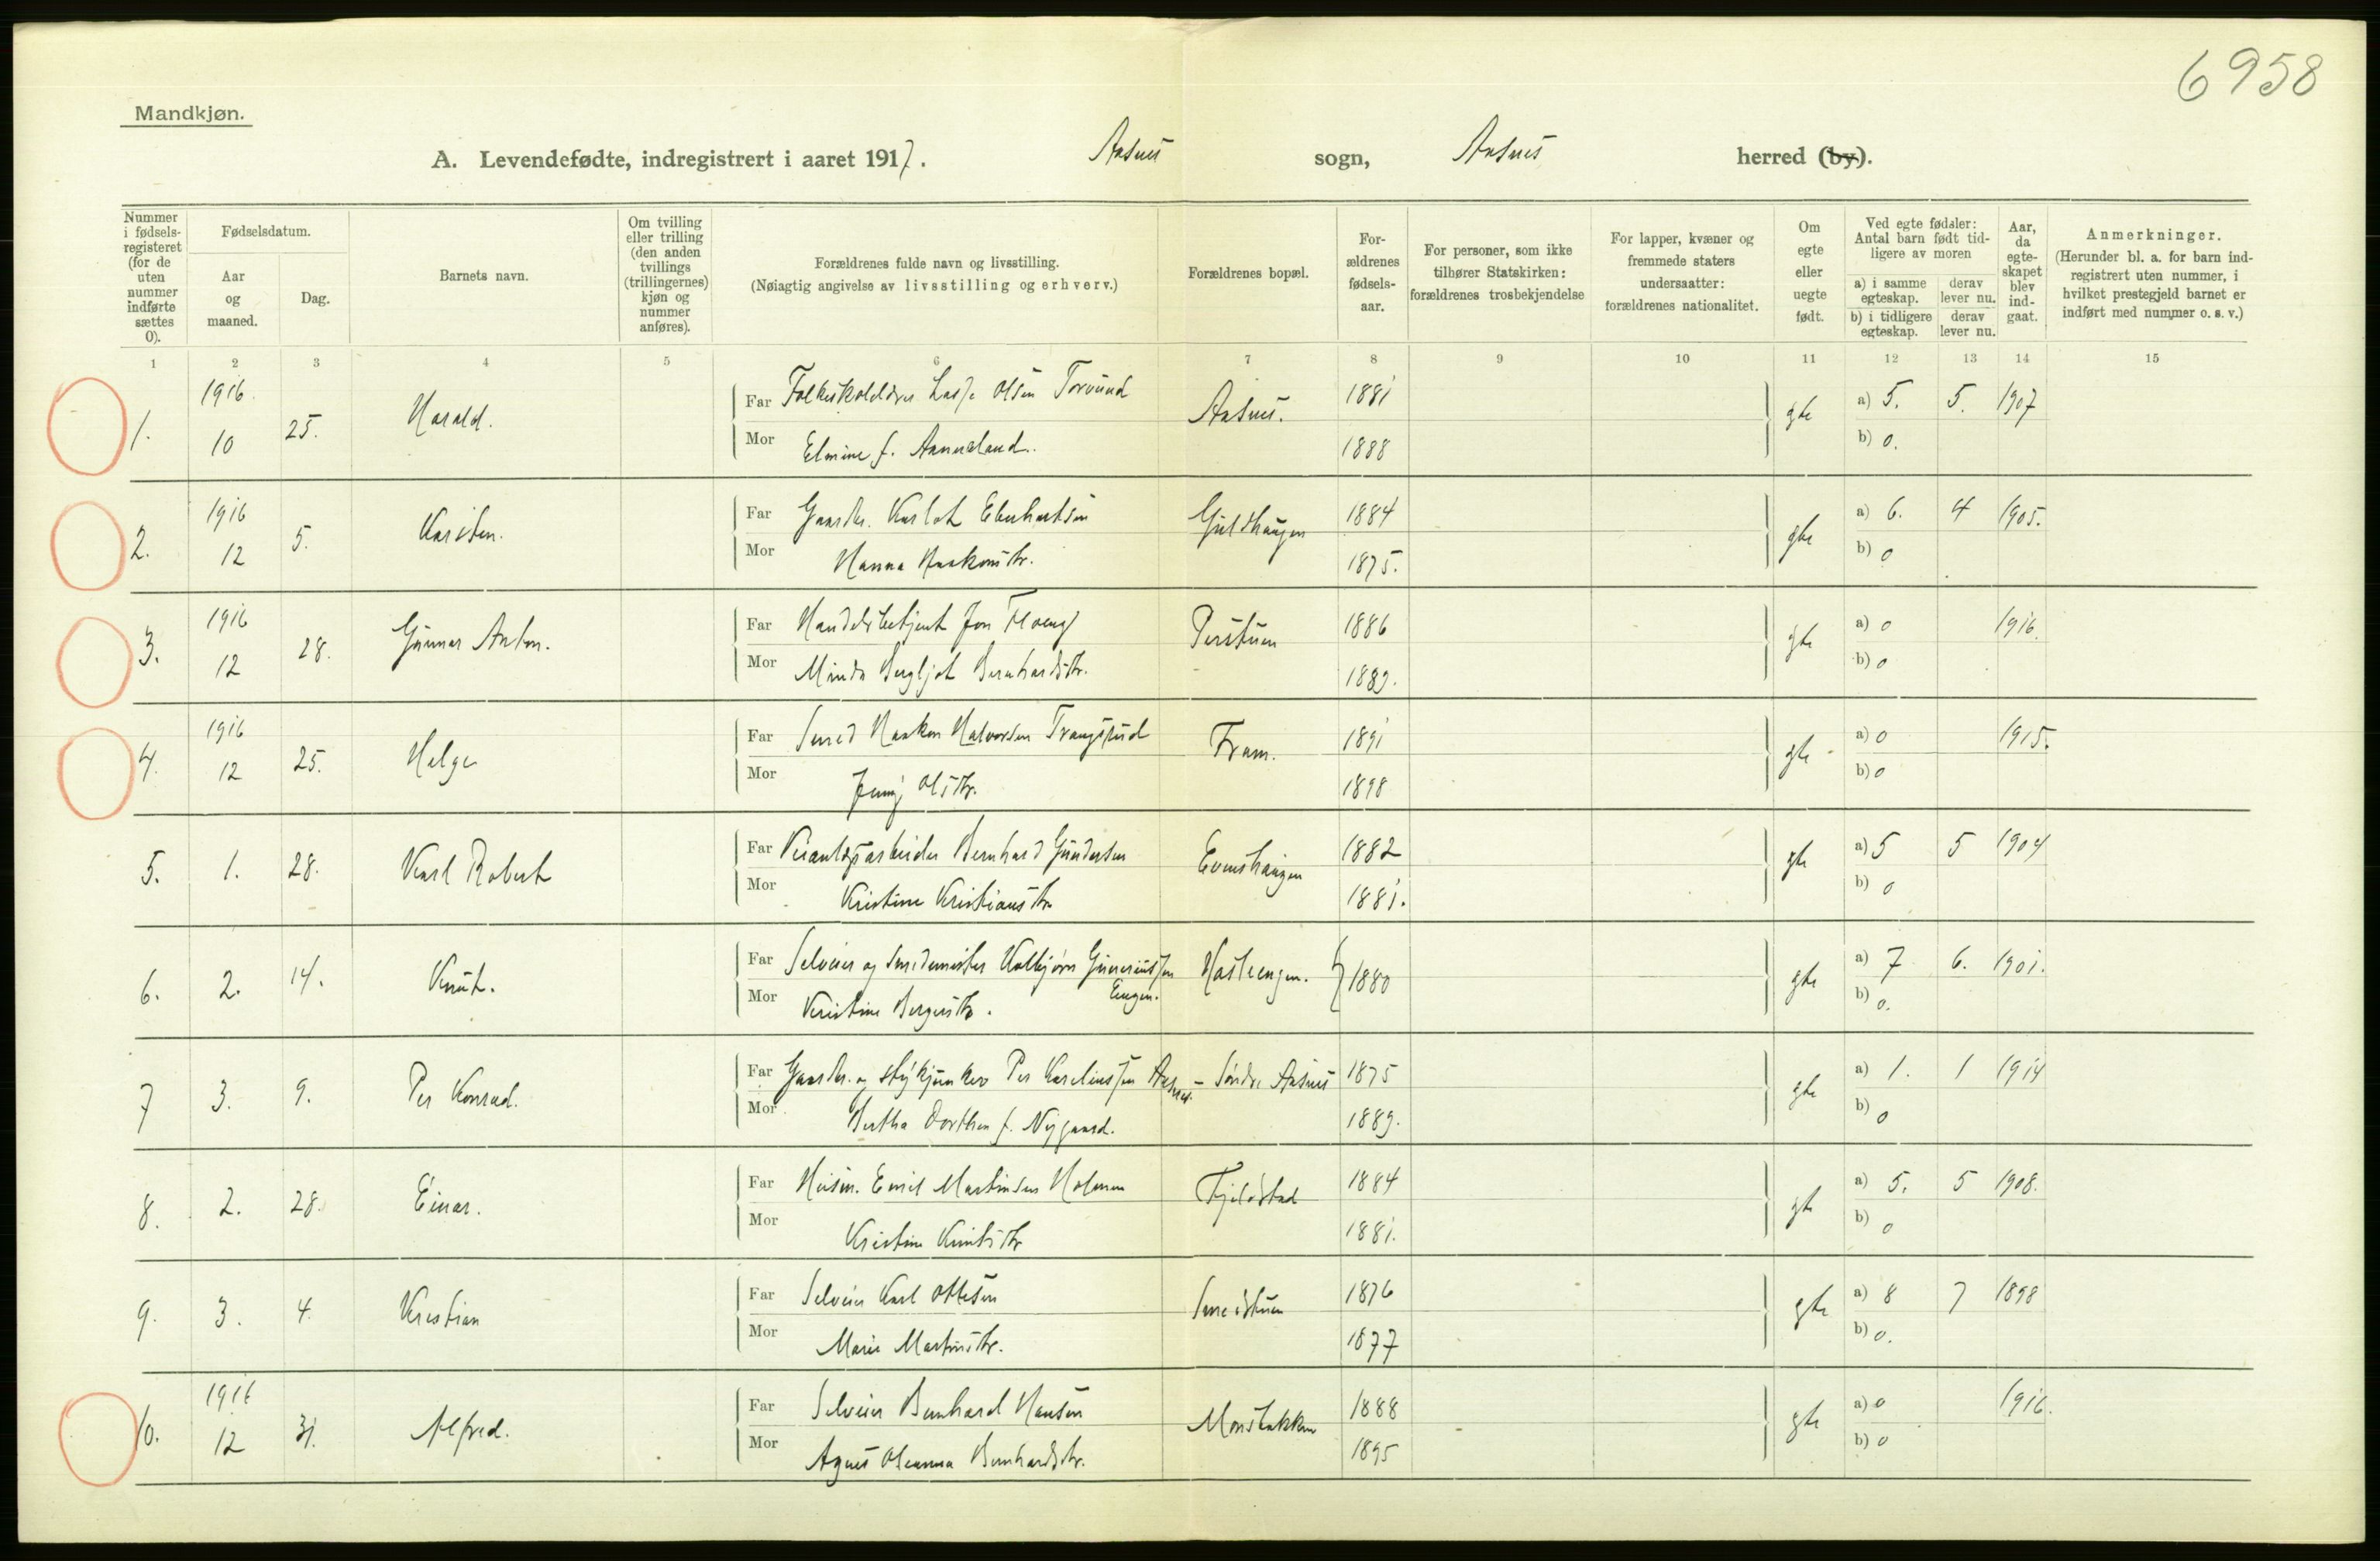 6958
Mandkjøn.
A. Levendefødte, indregistrert i aaret 1917. Aasnes sogn, Aasnes herred (by).
Nummer i fødsels-registeret (for de uten nummer indførte sættes 0).
Fødselsdatum.
Aar og maaned.
Dag.
Barnets navn.
Om tvilling eller trilling (den anden tvillings (trillingernes) kjøn og nummer anføres).
Forældrenes fulde navn og livsstilling.
(Nøiagtig angivelse av livsstilling og erhverv.)
Forældrenes bopæl.
For-ældrenes fødsels-aar.
For personer, som ikke tilhører Statskirken: forældrenes trosbekjendelse
For lapper, kvæner og fremmede staters undersaatter: forældrenes nationalitet.
Om egte eller uegte født.
Ved egte fødsler: Antal barn født tid-ligere av moren
a) i samme egteskap. derav lever nu.
b) i tidligere egteskap. derav lever nu.
Aar, da egte-skapet blev ind-gaat.
Anmerkninger.
(Herunder bl. a. for barn ind-registrert uten nummer, i hvilket prestegjeld barnet er indført med nummer o. s. v.)
1 2 3 4 5 6 7 8 9 10 11 12 13 14 15
1. 1916. 10 25. Harald. Far Folkeskolelærer Lars Olsen Aasnes. 1881 gte a) 5. 5. 1907
Mor Elmine f. 1888 b) 0.
2. 1916 12 5. Karsten. Far Gaardbr. Karlot Eberhartsen Guldhaugen 1884 gte a) 6. 4 1905.
Mor Hanna Haakonsdtr. 1875. b) 0
3. 1916 12 28. Gunnar Anton. Far Handelsbetjent Jon Perstuen 1886 gte a) 0 1916.
Mor Minda Bergljot Bernhardsdtr. 1889. b) 0
4. 1916 12 25. Helge Far Smed Haakon Halvorsen Fram. 1891 gte a) 0 1915.
Mor Jenny Olsdtr. 1898 b) 0
5. 1. 28. Karl Robert Far Veianlægsarbeider Bernhard Gundersen Evenshaugen 1882 gte a) 5 5 1904
Mor Kristine Kristiansdtr 1881. b) 0
6. 2. 14. Knut. Far Selveier og smedemester Kolbjørn Gunerius sen Engen. 1880 gte a) 7 6. 1901.
Mor Kristine Bergersdtr. b) 0.
7 3. 9. Per Konrad. Far Gaardbr. og stykjunker Per Kareliussen Aasnes. – Søndre Aasnes 1875 gte a) 1. 1 1914
Mor Bertha Dorthea f. Nygaard. 1889. b) 0
8. 2. 28. Einar. Far Husm. Emil Martinsen Holmen Fjeldstad 1884 gte a) 5. 5 1908.
Mor Kristine Knutsdtr 1881. b) 0
9. 3. 4. Kristian Far Selveier Karl Ottesen Smedstuen 1876 gte a) 8 7 1898
Mor Marie Martinsdtr. 1877 b) 0.
10. 1916 12 31. Alfred. Far Selveier Bernhard Hansen Monsbakken 1888 gte a) 0 1916.
Mor Agnes Oleanna Bernhardsdtr. 1895 b) 0